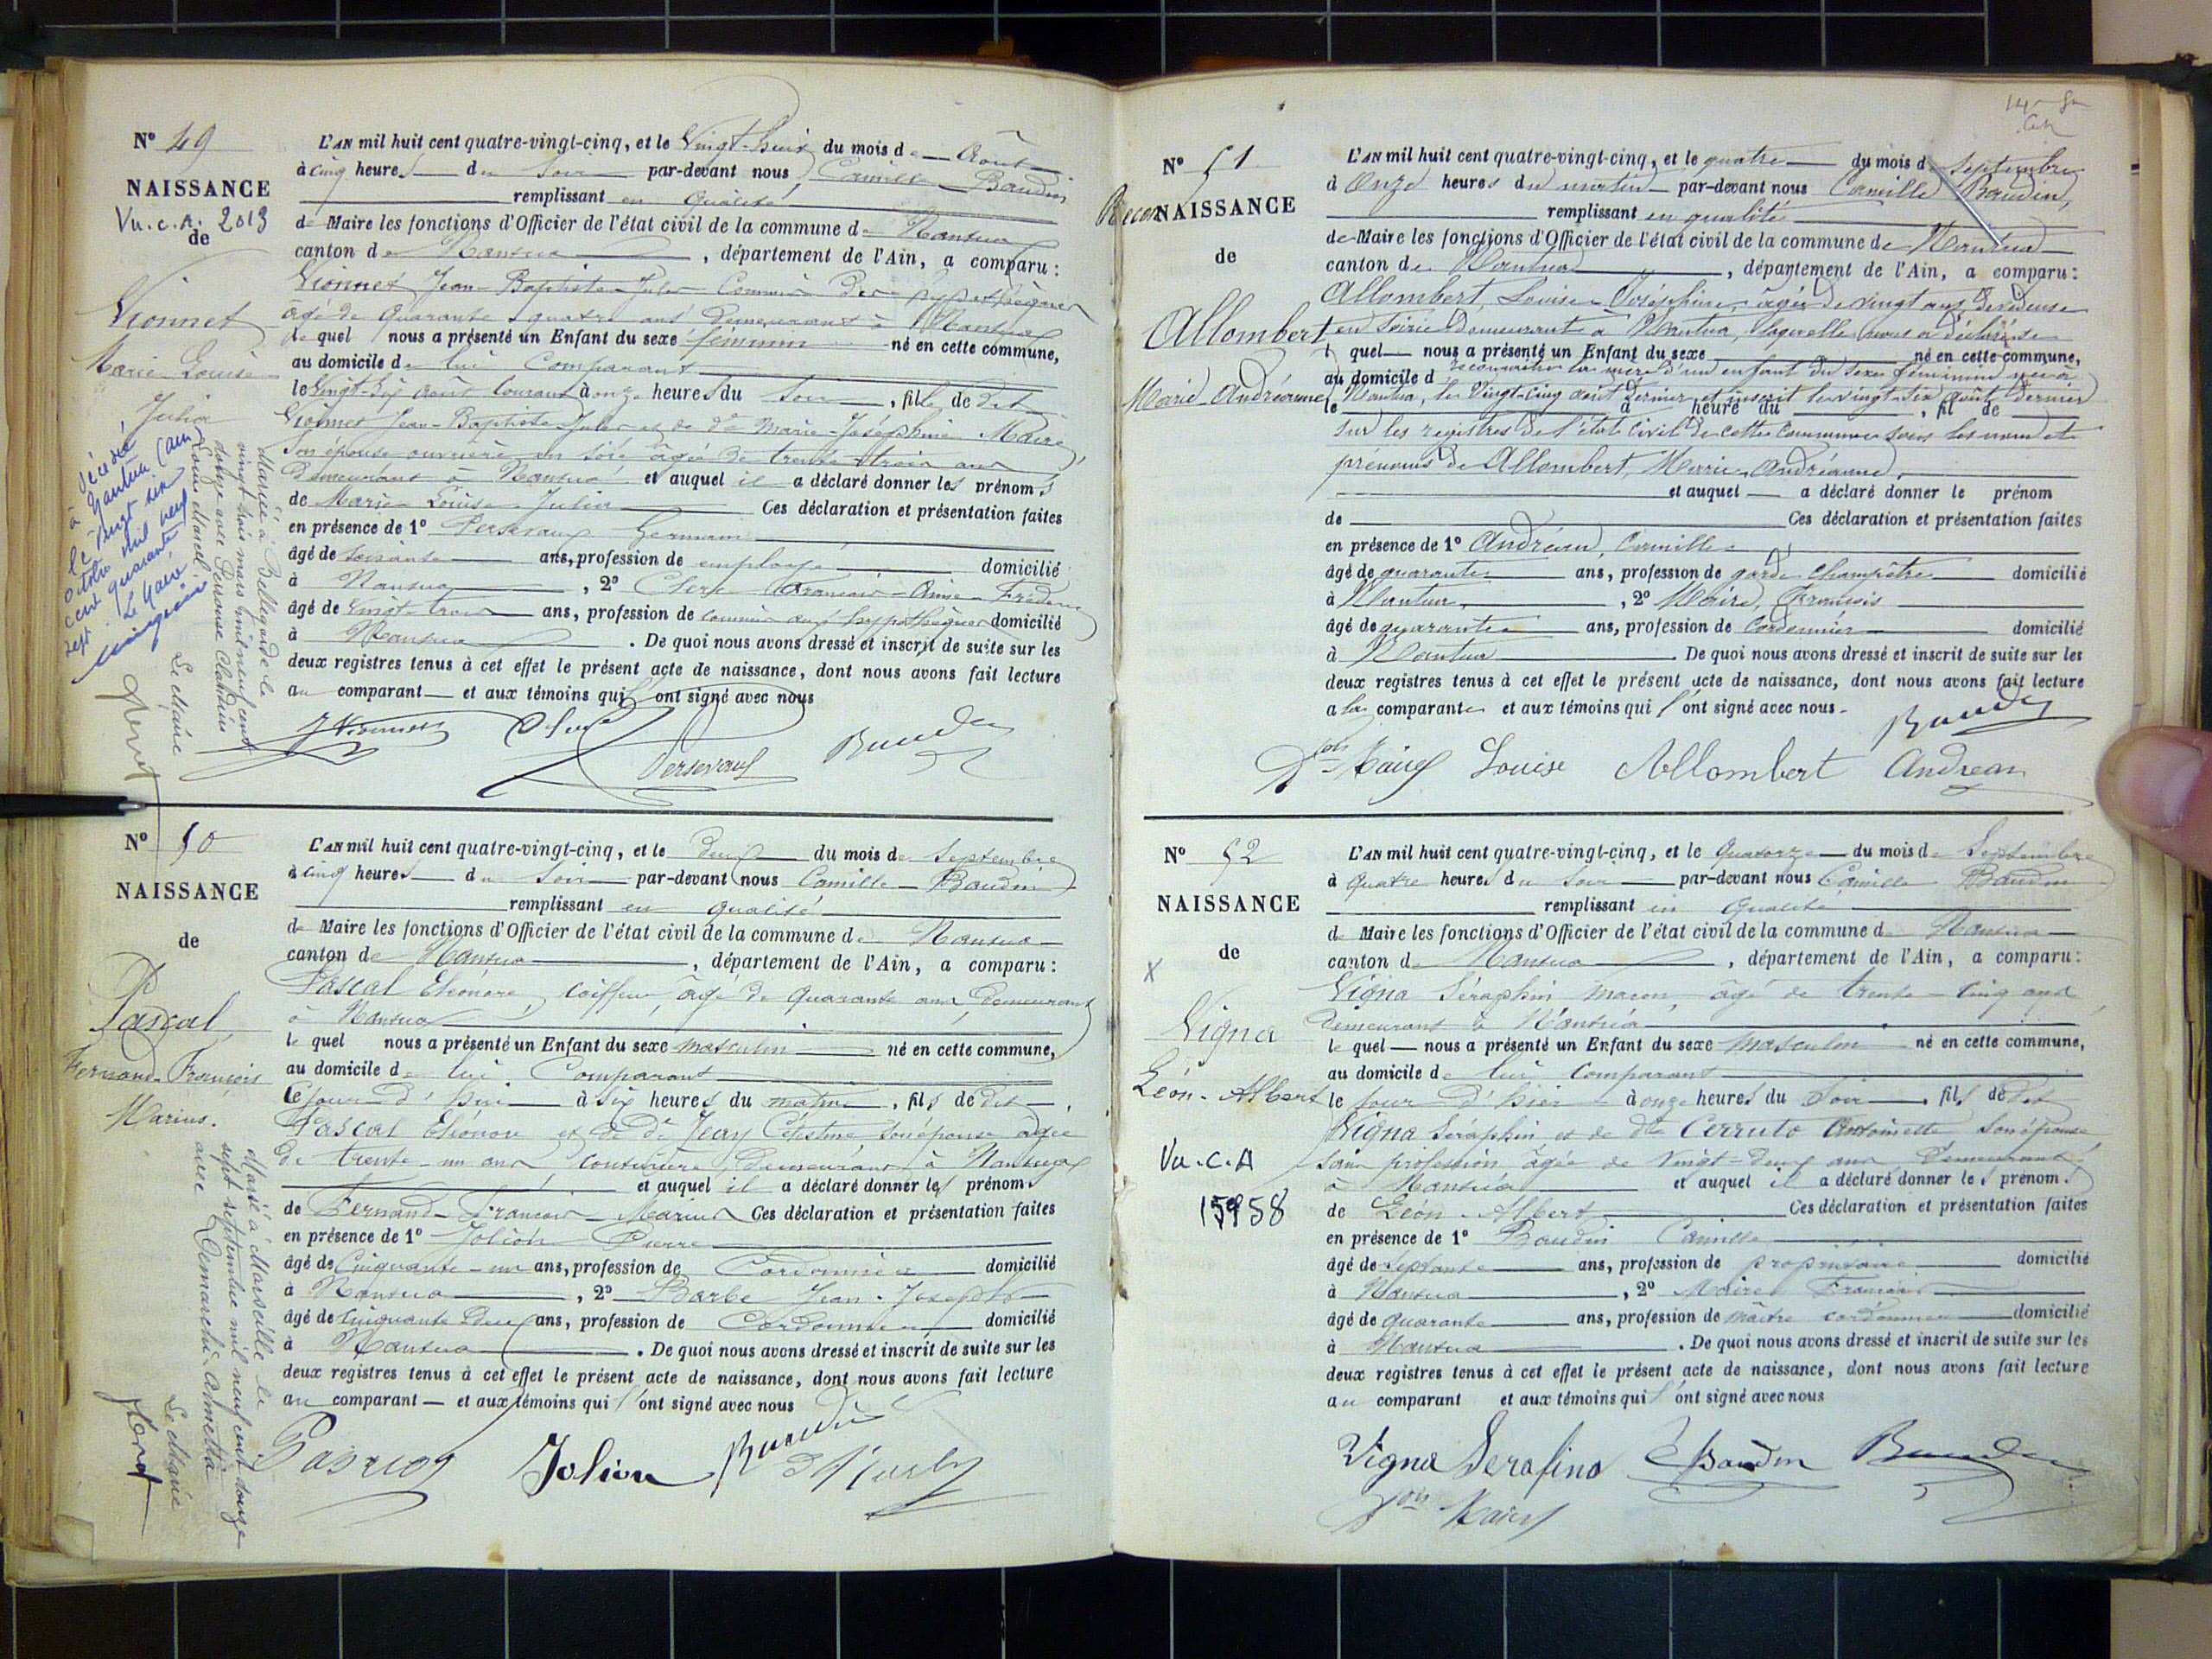 N° 49
NAISSANCE
Vu. c. A. 2013
de
Vionnet
Marie Louise
Julia
Décédée
à Nantua (Ain)
le vingt six
octobre mil neuf
cent quarante
sept. Le Maire
Mariée à Bellegarde le
vingt trois mars mil neuf cent
douze avec Perouse Claudius
Louis Marcel
Le Maire
L'AN mil huit cent quatre-vingt-cinq, et le Vingt-huit du mois d Août
à cinq heures du Soir par-devant nous Camille Baudin
remplissant en qualité
de Maire les fonctions d'Officier de l'état civil de la commune de Nantua
canton de Nantua, département de l'Ain, a comparu:
Vionnet Jean-Baptiste-Jules Commis des hypothèques
âgé de Quarante quatre ans demeurant à Nantua
le quel nous a présenté un Enfant du sexe féminin né en cette commune,
au domicile de lui Comparant
le Vingt-six août courant à onze heures du soir, fille de dit
Vionnet Jean-Baptiste Jules et de de Marie-Joséphine Maire
son épouse ouvrière en soie âgée de trente trois ans
demeurant à Nantua et auquel il a déclaré donner les prénoms
de Marie Louise Julia Ces déclaration et présentation faites
en présence de 1° Germain
âgé de soixante ans, profession de employé domicilié
à Nantua, 2° Clerc François-Aimé-Frédéric
âgé de vingt trois ans, profession de commis aux hypothèques domicilié
à Nantua. De quoi nous avons dressé et inscrit de suite sur les
deux registres tenus à cet effet le présent acte de naissance, dont nous avons fait lecture
au comparant et aux témoins qui l'ont signé avec nous
N° 50
NAISSANCE
de
Pascal
Fernand François
Marius.
Marié à Marseille le
sept septembre mil neuf cent douze
avec Demarchi Annetta
Le Maire
L'AN mil huit cent quatre-vingt-cinq, et le deux du mois de Septembre
à cinq heures du Soir par-devant nous Camille Baudin
remplissant en qualité
de Maire les fonctions d'Officier de l'état civil de la commune de Nantua
canton de Nantua, département de l'Ain, a comparu:
Pascal Eléonore, coiffeur, âgé de Quarante ans demeurant
à Nantua
le quel nous a présenté un Enfant du sexe masculin né en cette commune,
au domicile de lui Comparant
le jour d'hui à six heures du matin, fils de dit
Pascal Eléonore et de de Jeay Célestine son épouse âgée
de trente-un ans couturière, demeurant à Nantua
et auquel il a déclaré donner les prénoms
de Fernand-François-Marius Ces déclaration et présentation faites
en présence de 1° Jolion Pierre
âgé de Cinquante-un ans, profession de Cordonnier domicilié
à Nantua, 2° Barbe Jean-Joseph
âgé de cinquante deux ans, profession de Cordonnier domicilié
à Nantua. De quoi nous avons dressé et inscrit de suite sur les
deux registres tenus à cet effet le présent acte de naissance, dont nous avons fait lecture
au comparant et aux témoins qui l'ont signé avec nous
Jolion
N° 51
Recon NAISSANCE
de
Allombert
Marie Andréanne
L'AN mil huit cent quatre-vingt-cinq, et le quatre du mois d septembre
à Onze heures du matin par-devant nous Camille Baudin,
remplissant en qualité
de Maire les fonctions d'Officier de l'état civil de la commune de Nantua
canton de Nantua, département de l'Ain, a comparu:
Allombert, Louise Joséphine, âgée de vingt ans, devideuse
en soirie demeurant à Nantua, laquelle nous a déclaré se
quel nous a présenté un Enfant du sexe né en cette commune,
reconnaitre la mère d'un enfant du sexe féminin née à
au domicile d
Nantua, le Vingt-cinq août dernier et inscrit le vingt-six août dernier
le à heure du, fil de
sur les registres de l'état civil de cette commune sous les nom et
prénoms de Allombert, Marie Andréanne,
et auquel a déclaré donner le prénom
de Ces déclaration et présentation faites
en présence de 1° Andréan, Camille
âgé de quarante ans, profession de garde champêtre domicilié
à Nantua, 2° Maire, François
âgé de quarante ans, profession de Cordonnier domicilié
à Nantua. De quoi nous avons dressé et inscrit de suite sur les
deux registres tenus à cet effet le présent acte de naissance, dont nous avons fait lecture
a la comparante et aux témoins qui l'ont signé avec nous.
Louise Allombert Andrean
N° 52
NAISSANCE
de
X
Vigna
Léon-Albert
Vu. C. A
15958
L'AN mil huit cent quatre-vingt-cinq, et le Quatorze du mois de Septembre
à Quatre heures du soir par-devant nous Camille Baudin
remplissant en Qualité
de Maire les fonctions d'Officier de l'état civil de la commune de Nantua
canton de Nantua, département de l'Ain, a comparu:
Vigna Séraphin maçon, âgé de trente-cinq ans
demeurant à Nantua
le quel nous a présenté un Enfant du sexe masculin né en cette commune,
au domicile de lui comparant
le jour d'hier à onze heures du Soir, fils de dit
Vigna Séraphin et de dte Cerruto Antoinette son épouse
sans profession, âgée de Vingt-deux ans demeurant
à Nantua et auquel il a déclaré donner les prénoms
de Léon-Albert Ces déclaration et présentation faites
en présence de 1° Baudin Camille
âgé de septante ans, profession de propriétaire domicilié
à Nantua, 2° Maire François
âgé de Quarante ans, profession de maître cordonnier domicilié
à Nantua. De quoi nous avons dressé et inscrit de suite sur les
deux registres tenus à cet effet le présent acte de naissance, dont nous avons fait lecture
au comparant et aux témoins qui l'ont signé avec nous
Vigna Serafino Baudin